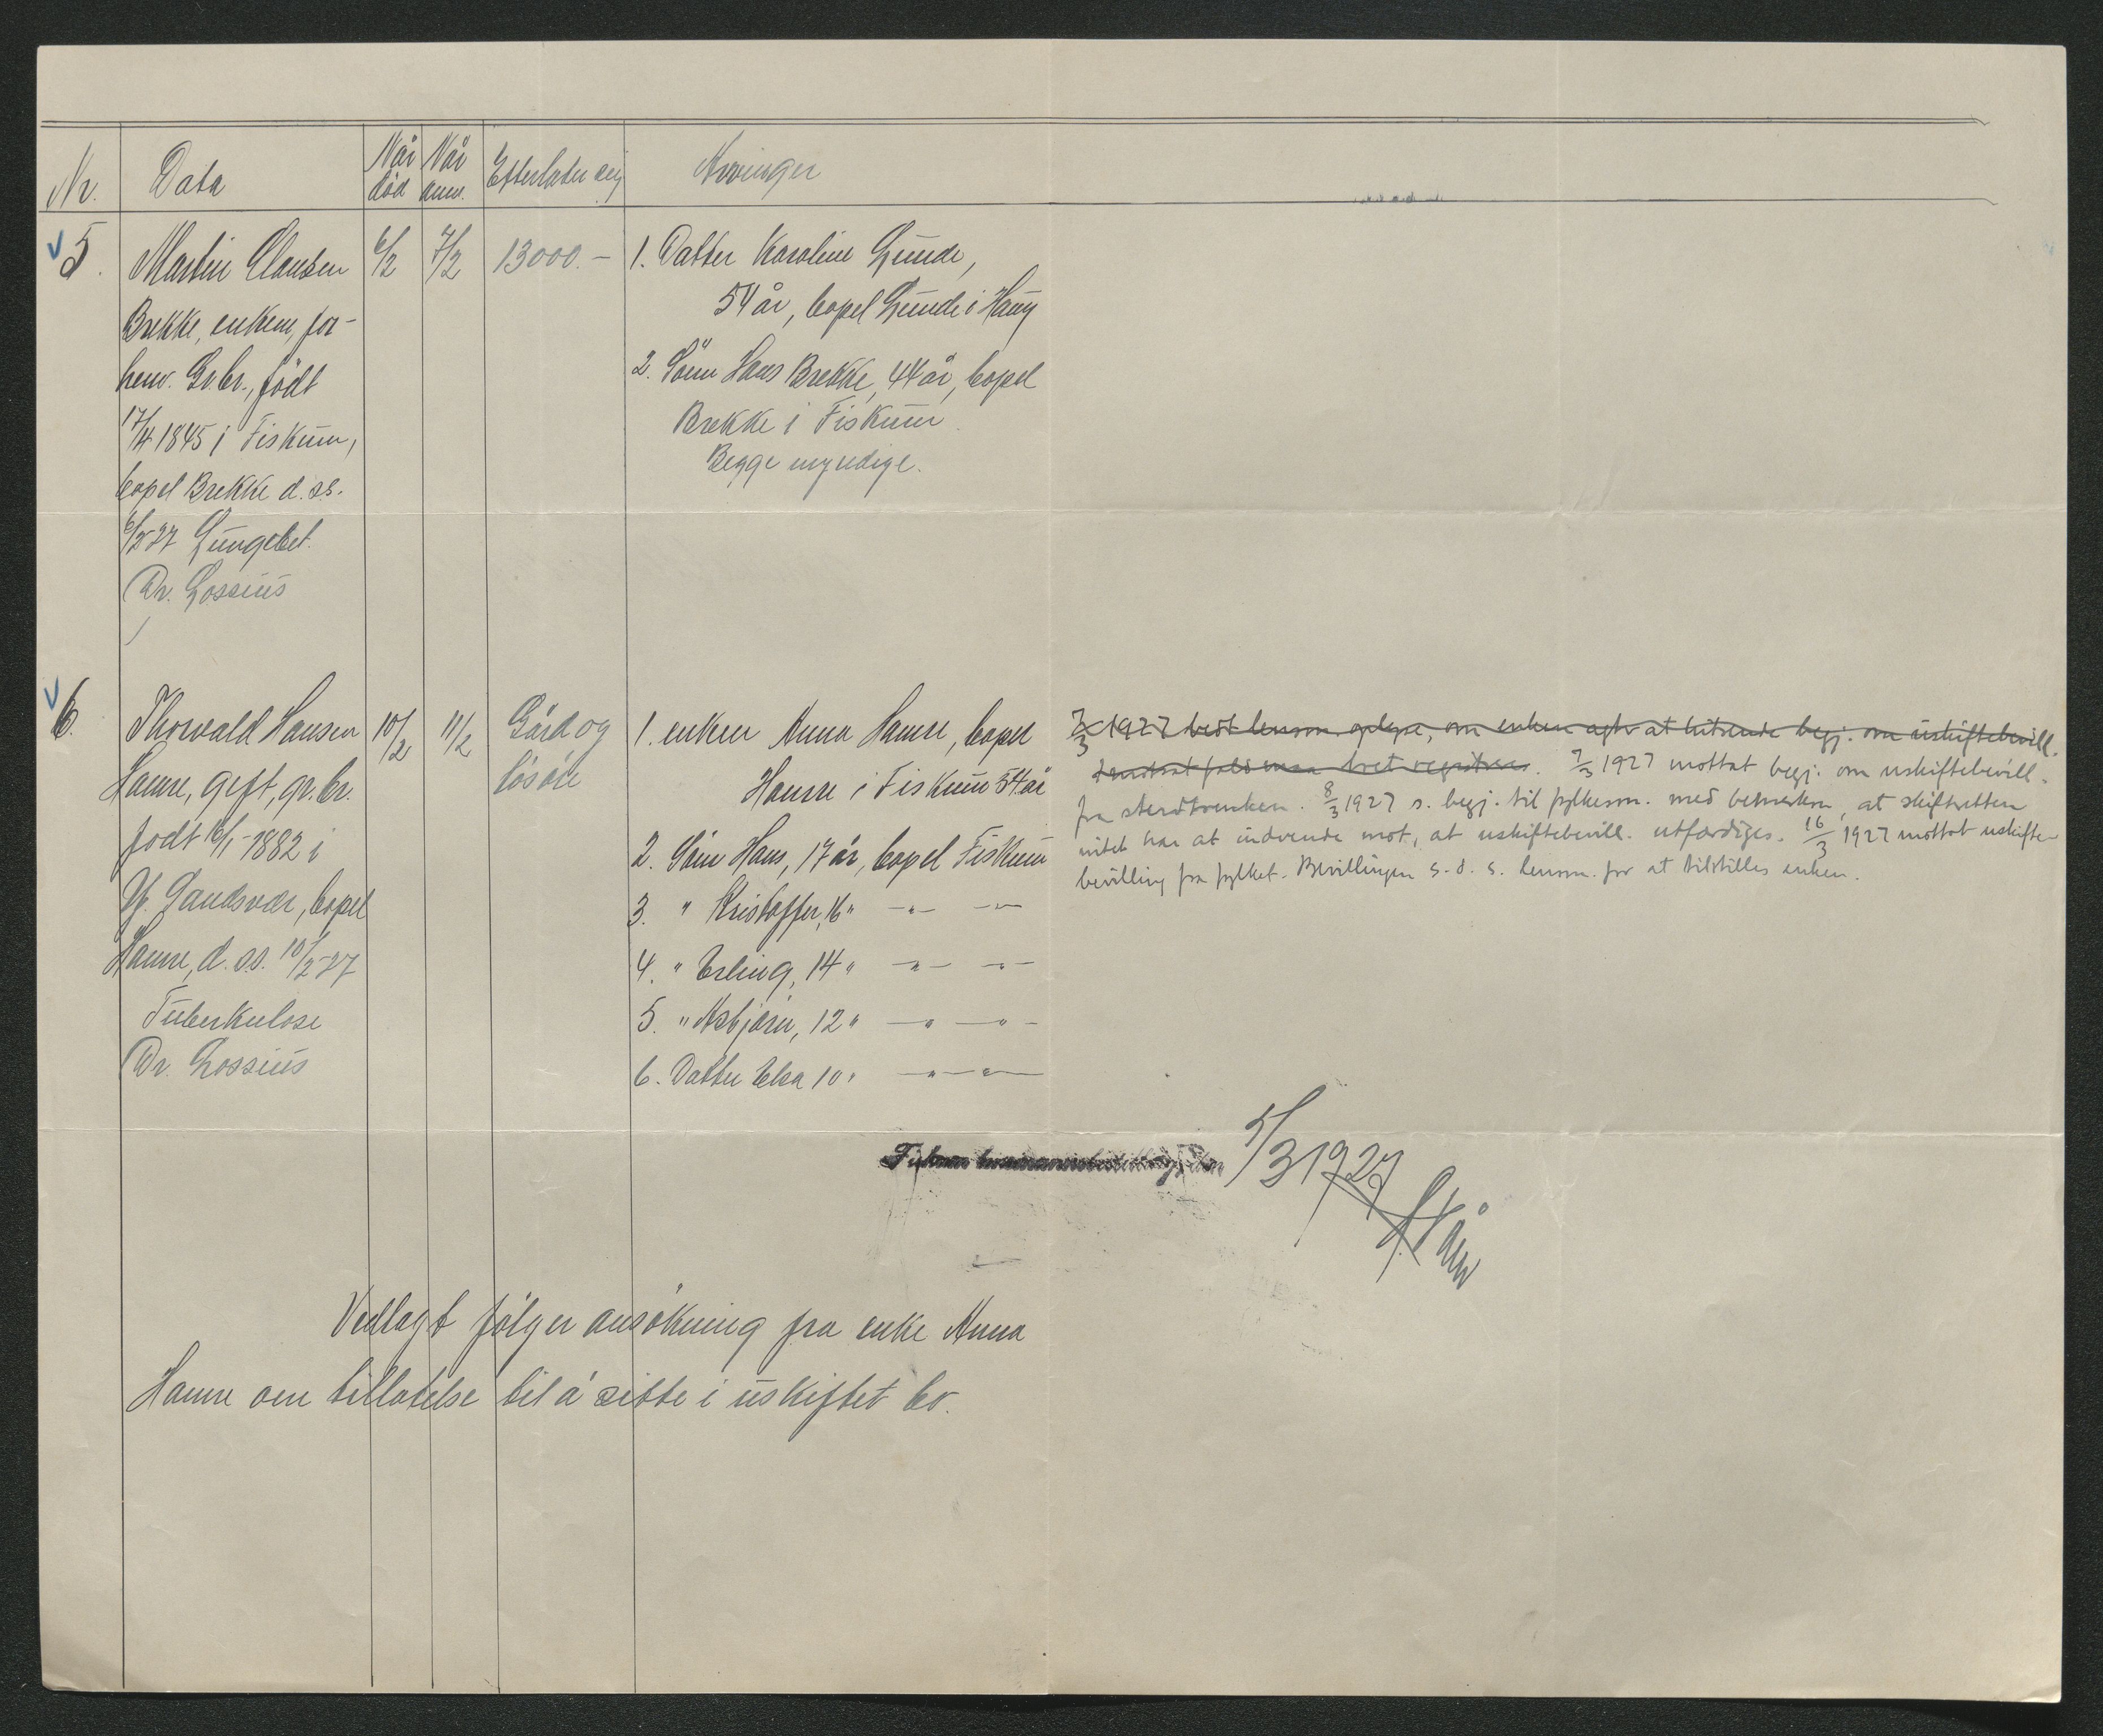 Nr. Data Når død Når anm. Efterlater sig Arvinger
5. Martin Clausen 6/2 7/2 13000.- 1. Datter Karoline Lunde,
Brekke, enkem, for-
54 år, bopel Lunde i Haug
henv. Gr.br., født
2. Sönn Hans Brekke, 44 år, bopel
17/4 1845 i Fiskum,
Brekke i Fiskum.
bopel Brekke d. ss.
Begge myndige.
6/2-27 Lungebet.
Dr. Lossius
6. Thorvald Hansen 10/2 11/2 Gård og løsøre 1. enken Anna Hamre, bopel
Hamre, gift, gr.br.
Hamre i Fiskum 54 år
født 16/1-1882 i
2. Sönn Hans, 17 år, bopel Fiskum
Y. Sandsvær, bopel
3. " Kristoffer, 16 " -"- -"-
Hamre, d. ss. 10/2-27
4. " Erling, 14 " -"- -"-
Tuberkulose
5. " Asbjørn, 12 " -"- -"-
Dr. Lossius
6. Datter Elsa 10 " -"- -"-
7/3 1927 bedt lensm. oplyse, om enken agter at indsende begj. om uskiftebevill.
I motsat fald maa boet registreres. 7/3 1927 mottat begj. om uskiftebevill.
fra sterdboenken. 8/3 1927 s. begj. til fylkesm. med bemerkn, at skifteretten
intet har at indvende mot, at uskiftebevill. utfærdiges. 16/3 1927 mottat uskifte-
bevilling fra fylket. Bevillingen s. d. s. lensm. for at tilstilles enken.
5/3 1927
Vedlagt følger ansøkning fra enke Anna
Hamre om tillatelse til å sitte i uskiftet bo.